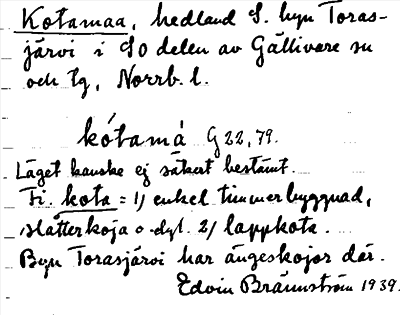 Kotamaa, hedland S. byn Toras-
järvi i SO delen av Gällivare sn
och tg, Norrb. l.
kótamá G 22, 79.
Läget kanske ej säkert bestämt.
Fi. kota = 1/ enkel timmerbyggnad,
slåtterkoja o dyl. 2/ lappkota.
Byn Torasjärvi har ängeskojor där.
Edvin Brännström 1939.